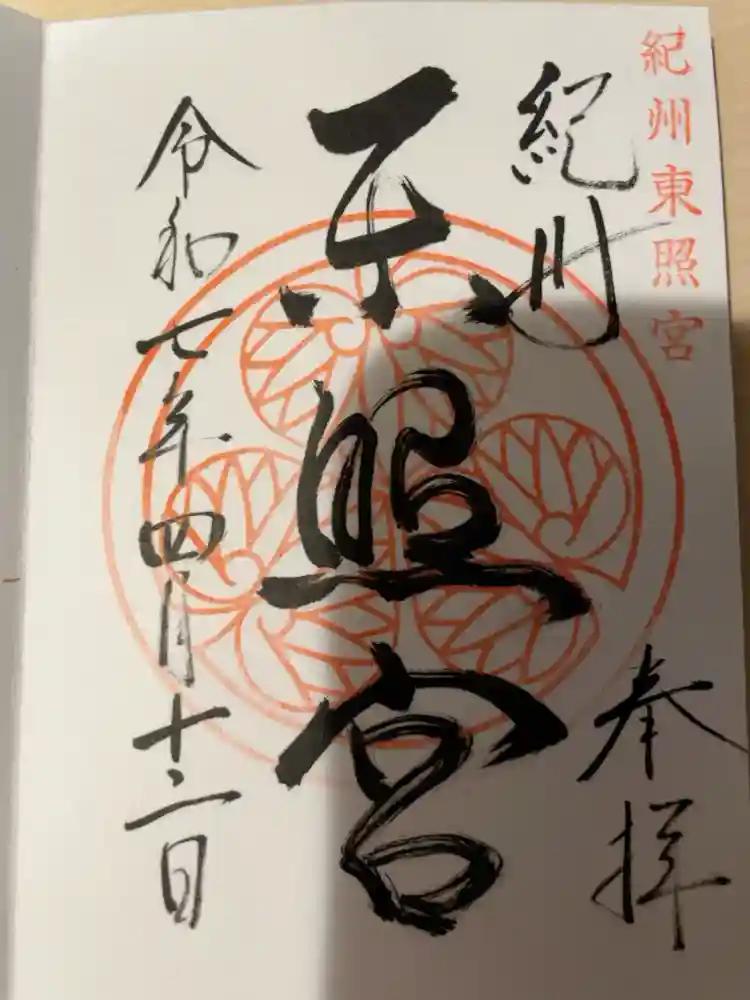 紀州東照宮
紀州
奉拝
东照宮
令和七年四月十二日